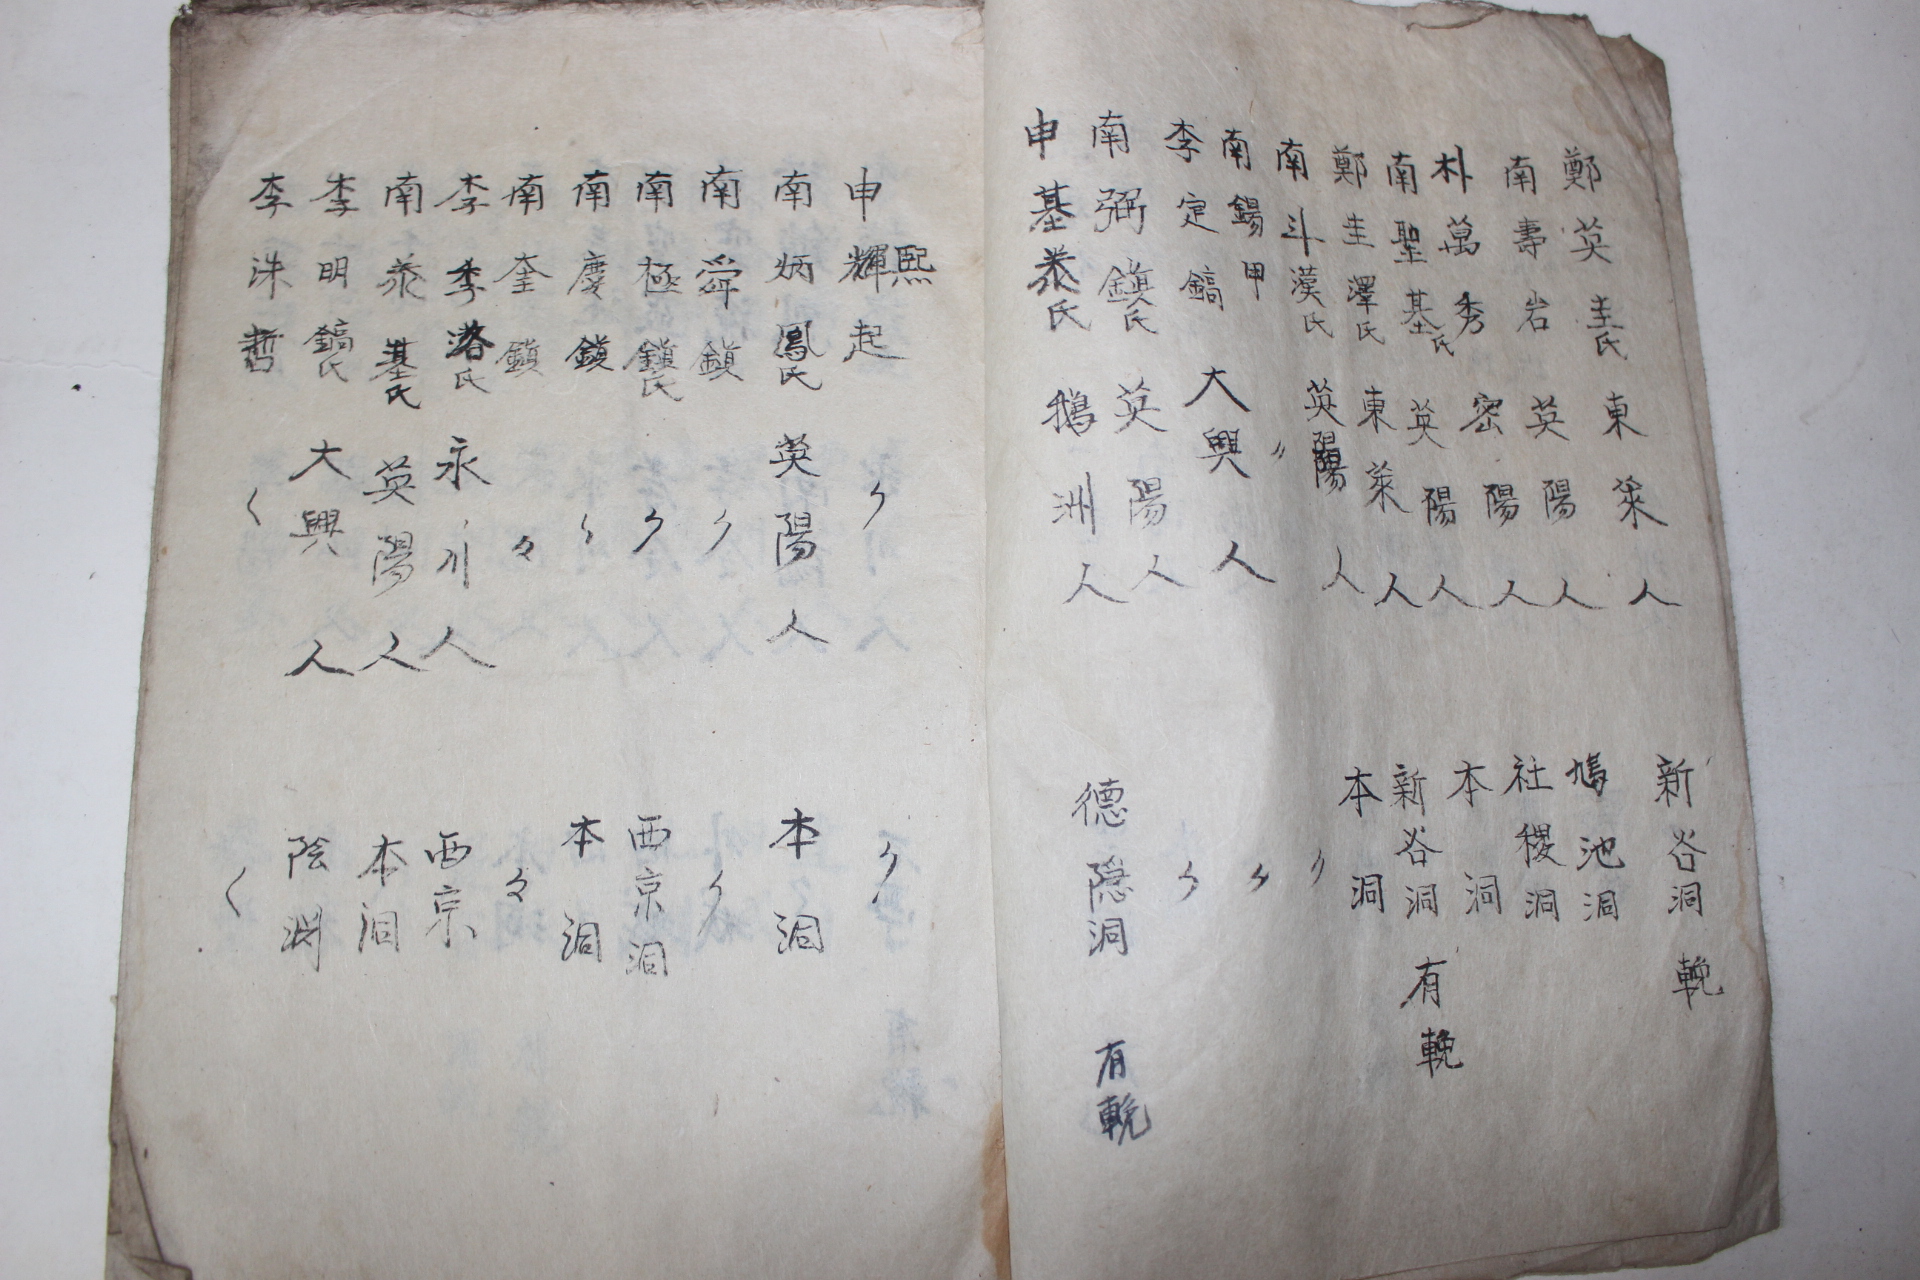 鄭英圭氏 東萊人 新谷洞 輓
南壽岩 英陽人 鳩池洞
朴萬秀 密陽人 社稷洞
南聖基氏 英陽人 本洞
鄭圭澤氏 東萊人 新谷洞 有輓
南斗漢氏 英陽人 本洞
南錫甲 〃 〃
李定鎬 大興人 〃
南弼鎭氏 英陽人 〃
申基泰氏 鵝洲人 德隱洞 有輓
申輝熙起 〃 〃
南炳鳳氏 英陽人 本洞
南舜鎭 〃 〃
南極鎭氏 〃 西京洞
南慶鎭 〃 本洞
南奎鎭 々 々
李季洛氏 永川人 西京
南泰基氏 英陽人 本洞
李明鎬氏 大興人 陰淵
李洙哲 〃 〃